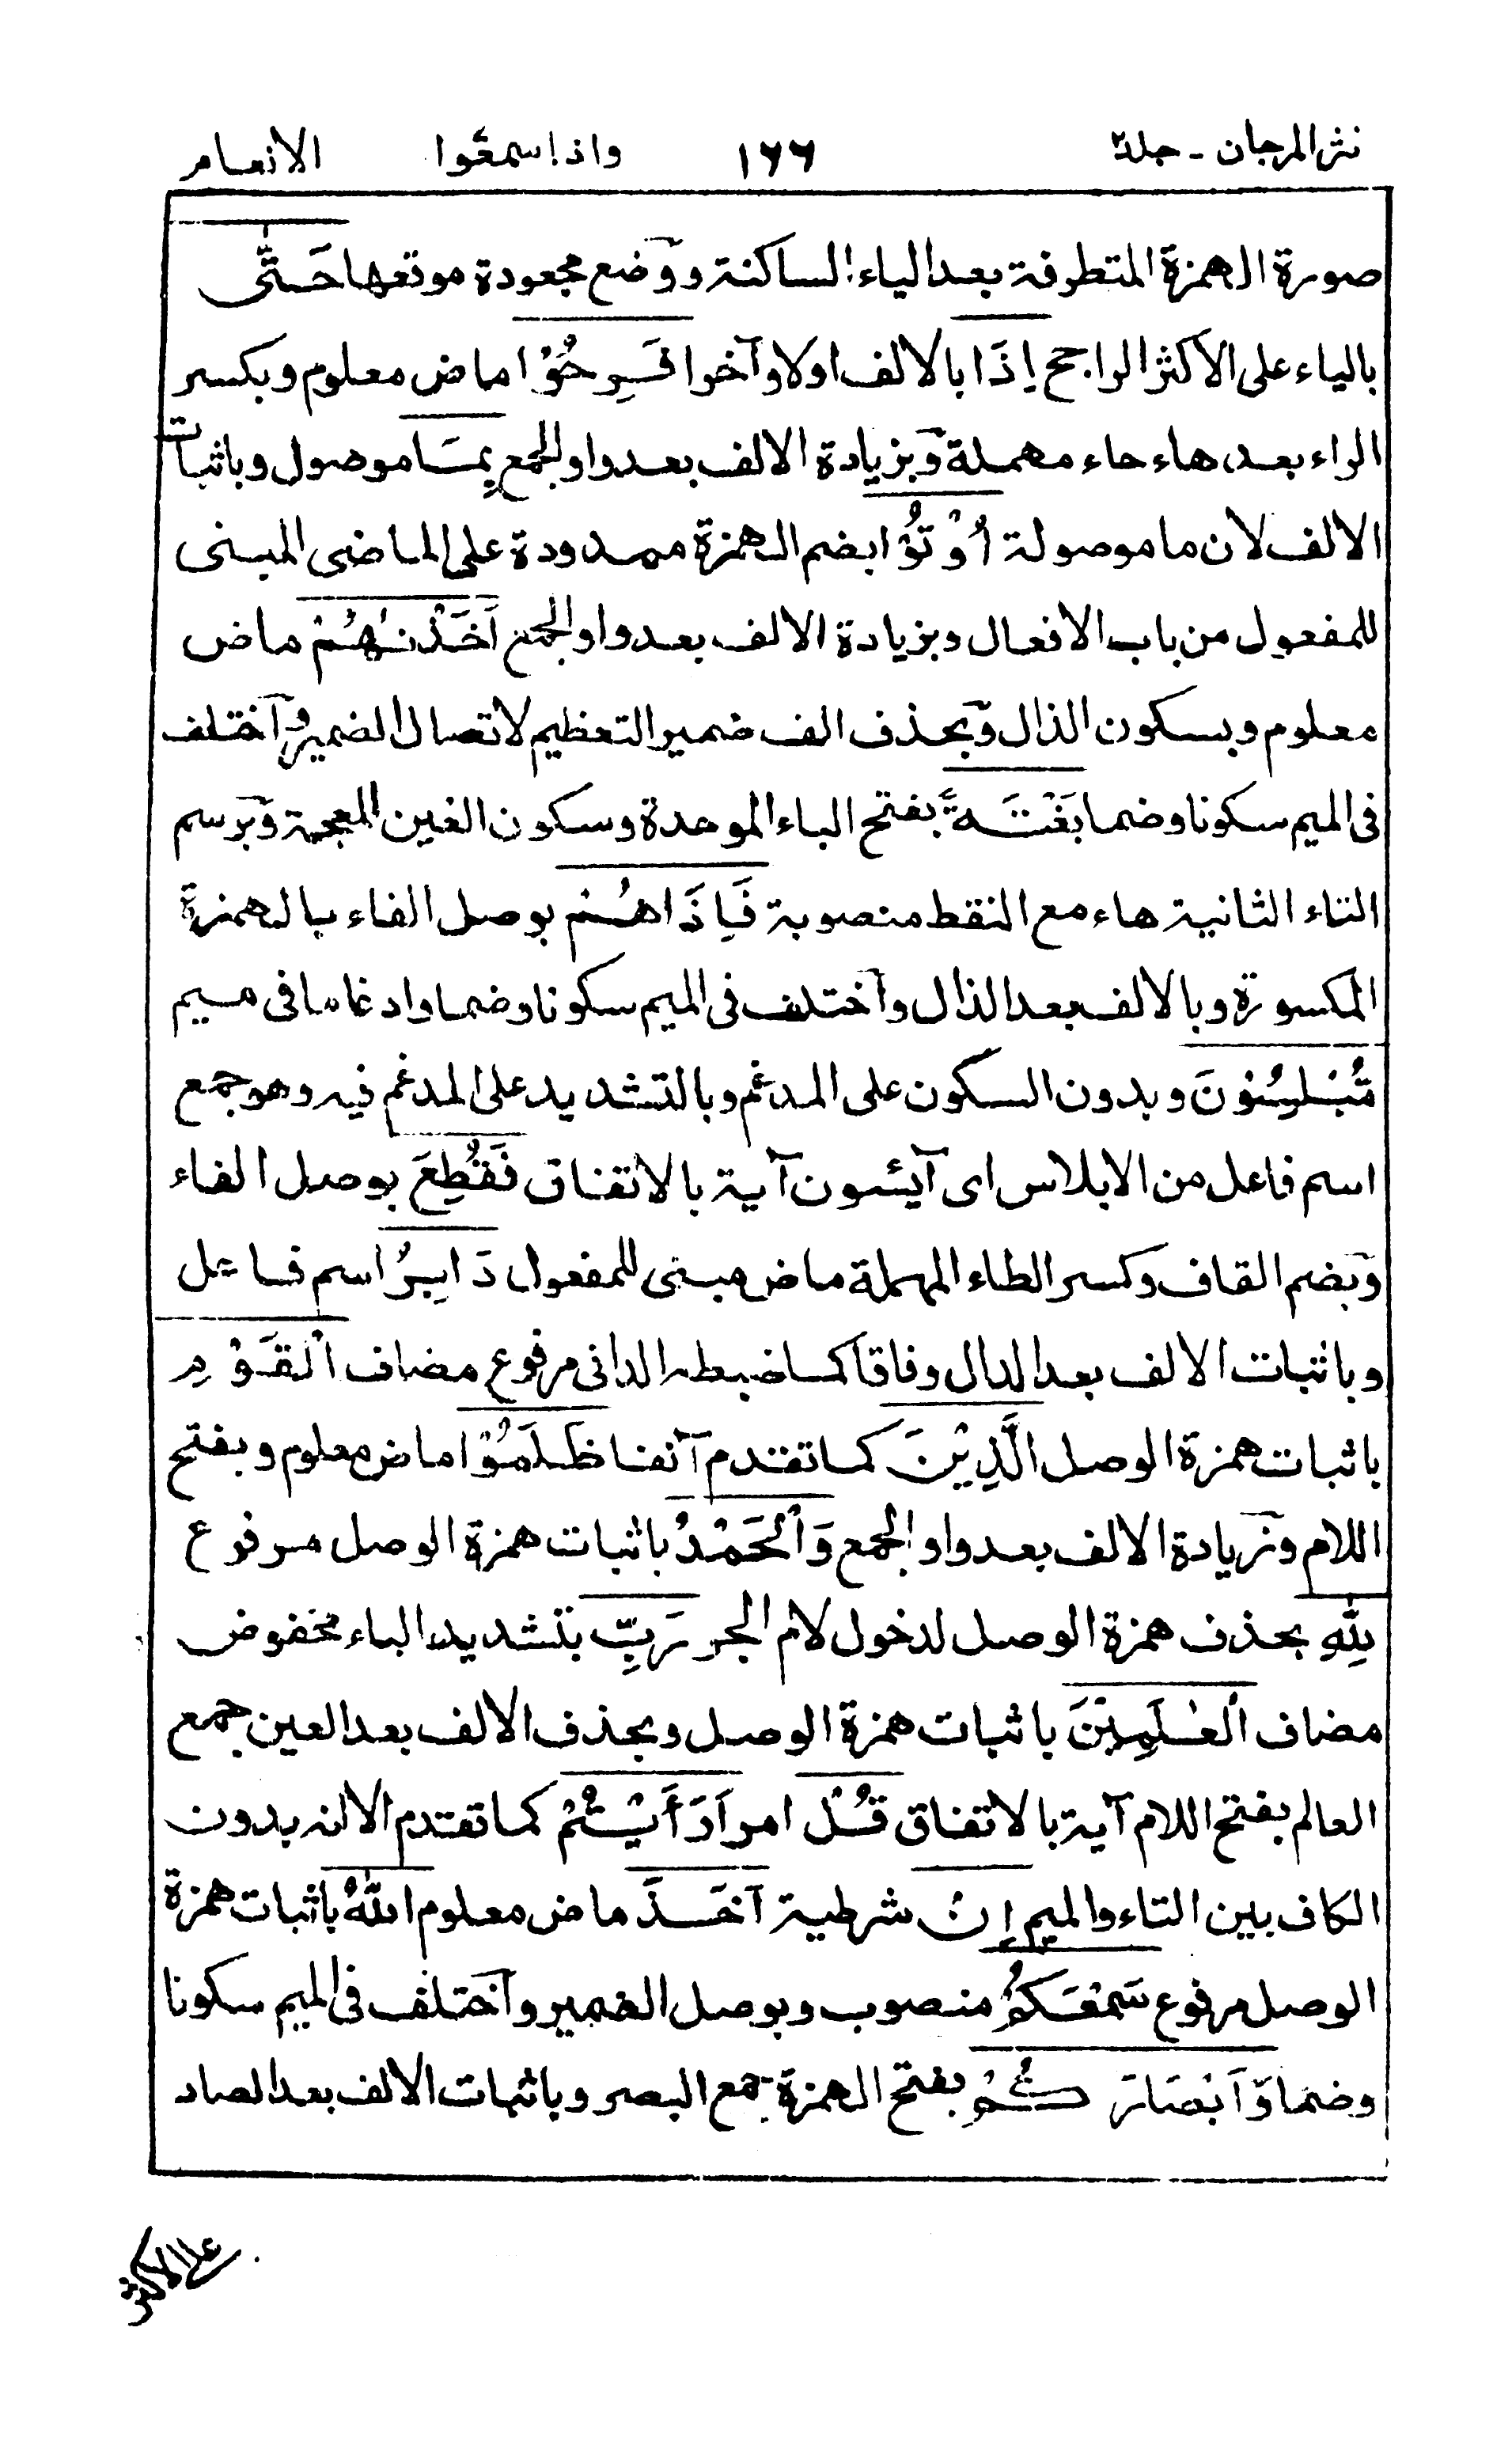 نثر المرجان - جلد٢ ١٦٦ واذا سمعوا الانعام
صورة الهمزة المتطرفة بعد الياء الساكنة ووضع مجعودة موقعها حَتّٰى
بالياء على الاكثر الراجح اِذَا بالالف اولا وآخرا فَرِحُوْا ماض معلوم وبكسر
الراء بعدها حاء مهملة وبزيادة الالف بعد واو الجمع بِمَا موصول وباثبات
الالف لان ما موصولة اُوْتُوْا بضم الهمزة ممدودة على الماضى المبنى
للمفعول من باب الافعال وبزيادة الالف بعد واو الجمع اَخَذْنٰهُمْ ماض
معلوم وبسكون الذال وبحذف الف ضمير التعظيم لاتصال الضمير واختلف
فى الميم سكونا وضما بَغْتَةً بفتح الباء الموحدة وسكون الغين المعجمة وبرسم
التاء الثانية هاء مع النقط منصوبة فَاِذَا هُمْ بوصل الفاء بالهمزة
المكسورة وبالالف بعد الذال واختلف فى الميم سكونا وضما وادغاما فى ميم
مُّبْلِسُوْنَ وبدون السكون على المدغم وبالتشديد على المدغم فيه وهو جمع
اسم فاعل من الابلاس اى آيئسون آية بالاتفاق فَقُطِعَ بوصل الفاء
وبضم القاف وكسر الطاء المهملة ماض مبنى للمفعول دَابِرُ اسم فاعل
وباثبات الالف بعد الدال وفاقا كما ضبطه الدانى مرفوع مضاف الْقَوْمِ
باثبات همزة الوصل الَّذِيْنَ كما تقدم آنفا ظَلَمُوْا ماض معلوم وبفتح
اللام وبزيادة الالف بعد واو الجمع وَالْحَمْدُ باثبات همزة الوصل مرفوع
لِلّٰهِ بحذف همزة الوصل لدخول لام الجر رَبِّ بتشديد الباء مخفوض
مضاف الْعٰلَمِيْنَ باثبات همزة الوصل وبحذف الالف بعد العين جمع
العالم بفتح اللام آية بالاتفاق قُلْ امر اَرَءَيْتُمْ كما تقدم الا انه بدون
الكاف بين التاء والميم اِنْ شرطية اَخَذَ ماض معلوم اللّٰهُ باثبات همزة
الوصل مرفوع سَمْعَكُمْ منصوب وبوصل الضمير واختلف فى الميم سكونا
وضما وَاَبْصَارَكُمْ بفتح الهمزة جمع البصر وباثبات الالف بعد الصاد